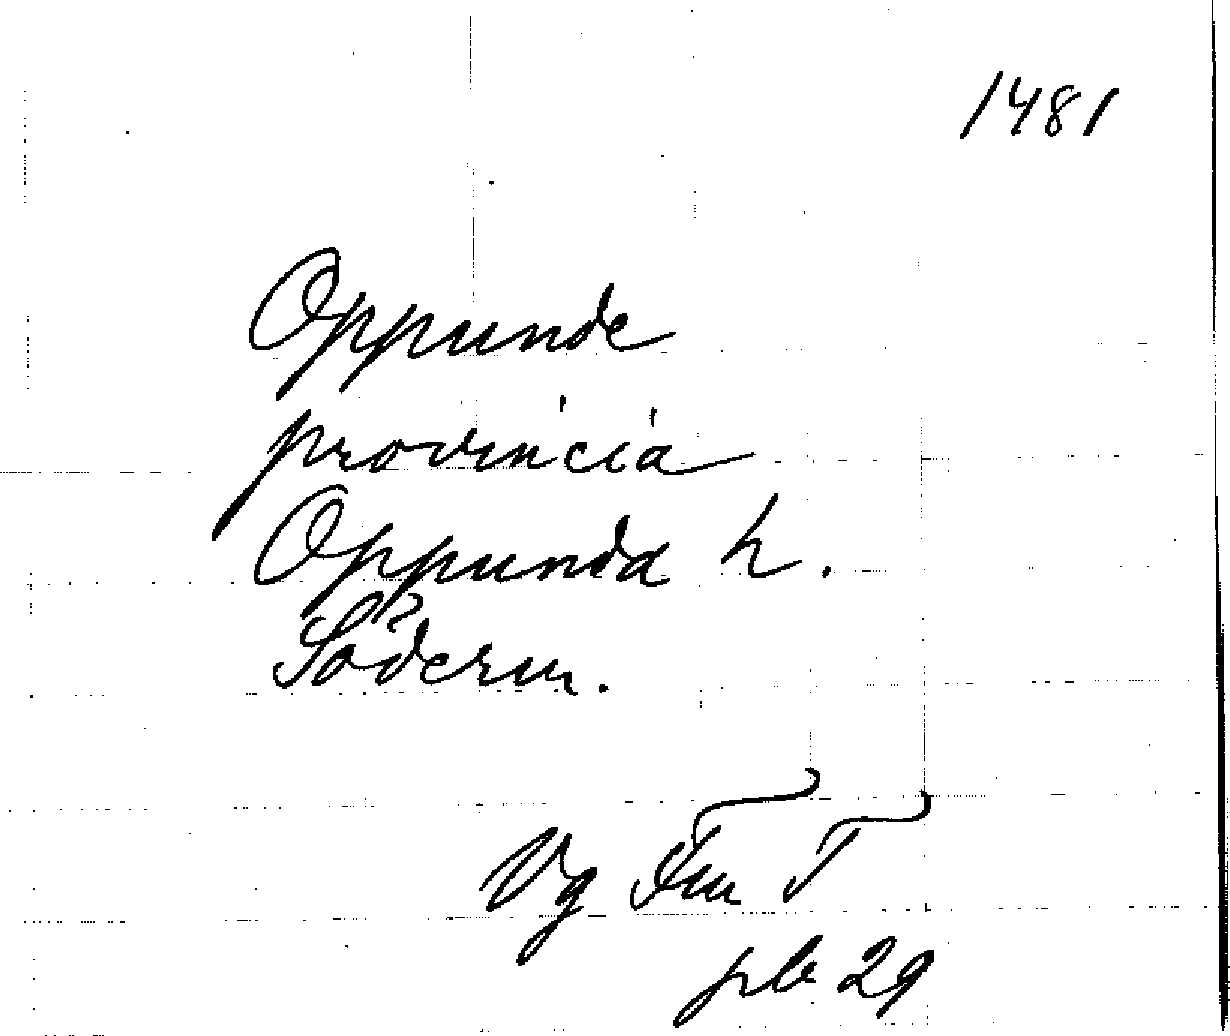 1481
Oppunde
provincia
Oppunda h.
Söderm.
Vg Fm T
pb 29